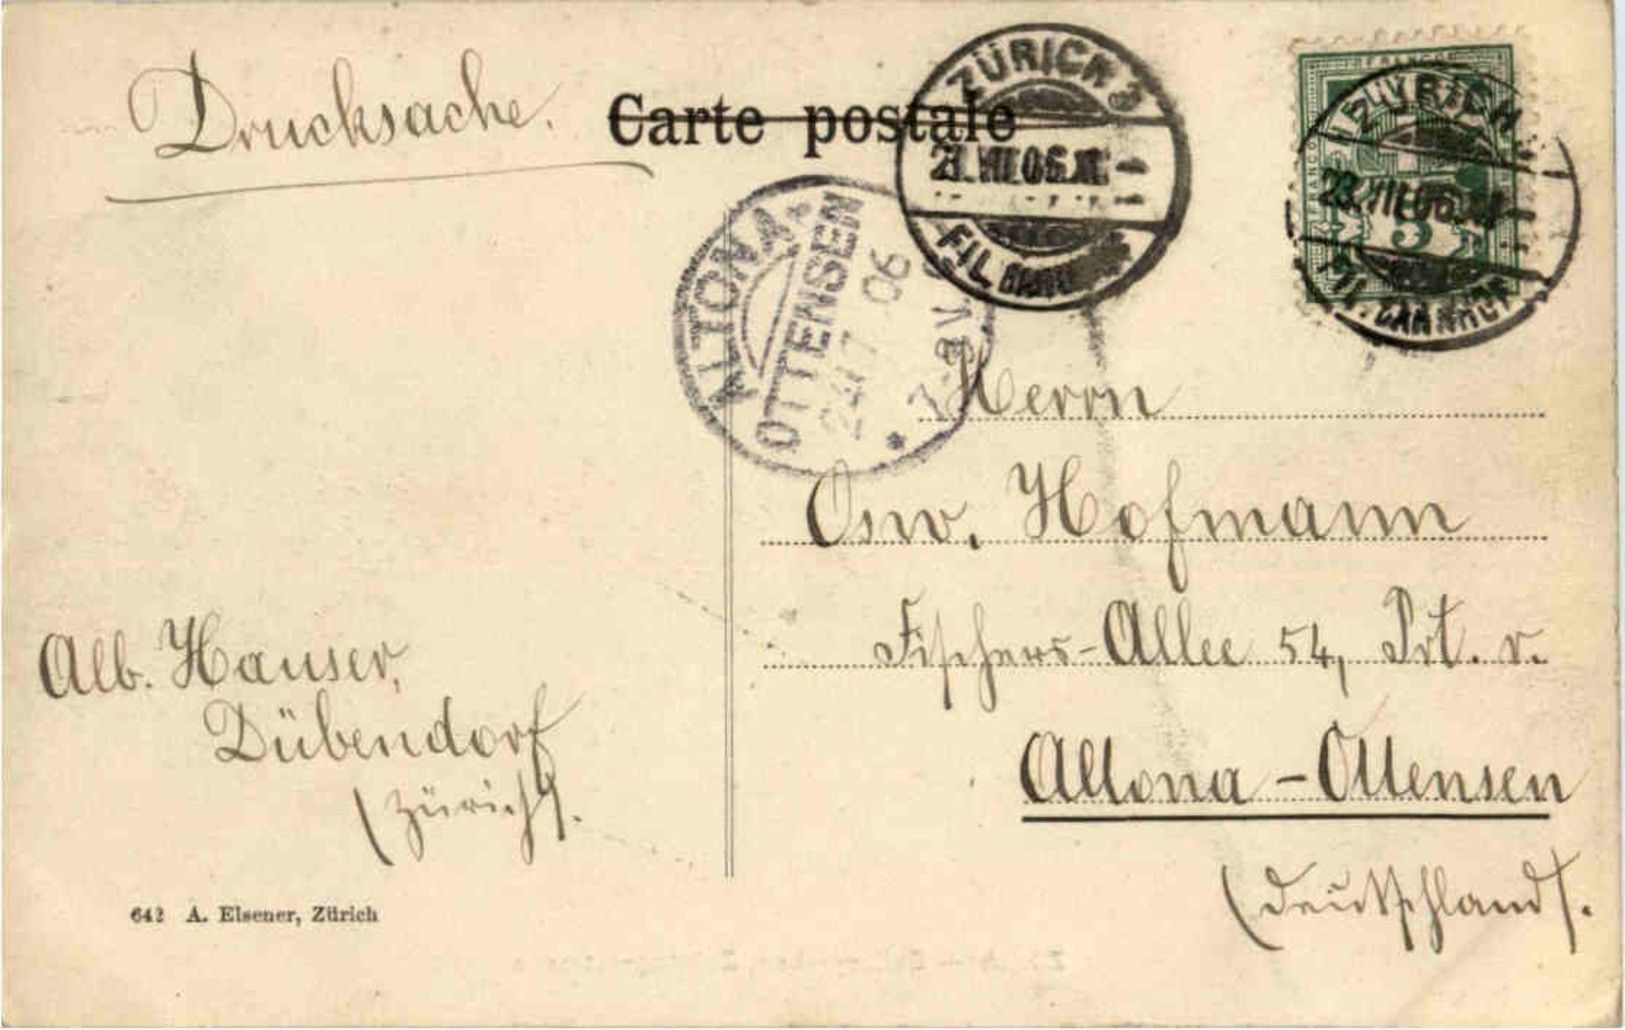 Drucksache.
Carte postale
ZÜRICH 3
FIL.
ZÜRICH
23.VII.06.
FIL. BAHNHOF
FRANCO
5
ALTONA
OTTENSEN
24.7 06
7-8V.
Herrn
Osw. Hofmann
Fischers-Allee 54, Prt. r.
Altona-Ottensen
(Deutschland).
Alb. Hauser,
Dübendorf
(Zürich).
642 A. Elsener, Zürich